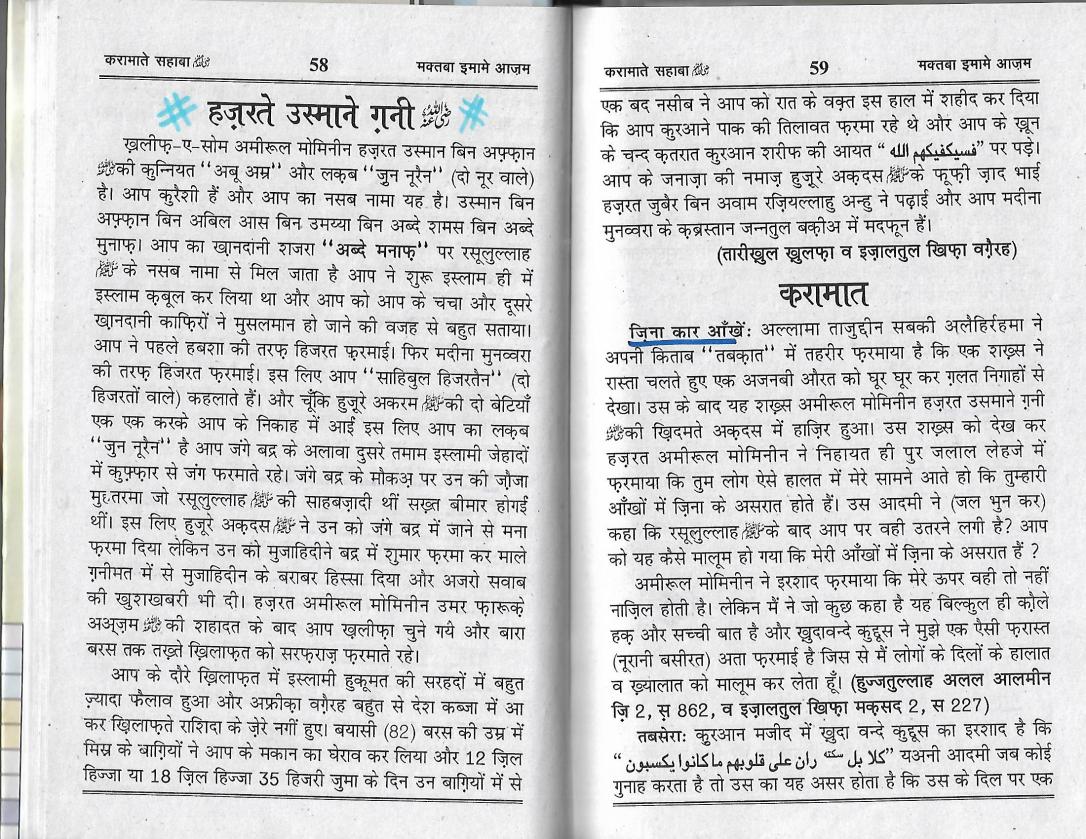 करामाते सहाबा 58 मक्तबा इमामे आज़म
हज़रते उस्माने ग़नी
ख़लीफ़-ए-सोम अमीरूल मोमिनीन हज़रत उस्मान बिन अफ़्फ़ान
ﷺ की कुन्नियत "अबू अम्र" और लक़ब "जुन नूरैन" (दो नूर वाले)
है। आप कुरैशी हैं और आप का नसब नामा यह है। उस्मान बिन
अफ़्फ़ान बिन अबिल आस बिन उमय्या बिन अब्दे शमस बिन अब्दे
मुनाफ़। आप का ख़ानदांनी शजरा "अब्दे मनाफ़" पर रसूलुल्लाह
ﷺ के नसब नामा से मिल जाता है आप ने शुरू इस्लाम ही में
इस्लाम क़बूल कर लिया था और आप को आप के चचा और दूसरे
ख़ानदानी काफ़िरों ने मुसलमान हो जाने की वजह से बहुत सताया।
आप ने पहले हबशा की तरफ़ हिजरत फ़रमाई। फिर मदीना मुनव्वरा
की तरफ़ हिजरत फ़रमाई। इस लिए आप "साहिबुल हिजरतैन" (दो
हिजरतों वाले) कहलाते हैं। और चूँकि हुजूरे अकरम ﷺ की दो बेटियाँ
एक एक करके आप के निकाह में आई इस लिए आप का लक़ब
"जुन नूरैन" है आप जंगे बद्र के अलावा दुसरे तमाम इस्लामी जेहादों
में कुफ़्फार से जंग फरमाते रहे। जंगे बद्र के मौकअ् पर उन की जौ़जा
मुहतरमा जो रसूलुल्लाह ﷺ की साहबज़ादी थीं सख़्त बीमार होगई
थीं। इस लिए हुजूरे अक़दस ﷺ ने उन को जंगे बद्र में जाने से मना
फ़रमा दिया लेकिन उन को मुजाहिदीने बद्र में शुमार फ़रमा कर माले
ग़नीमत में से मुजाहिदीन के बराबर हिस्सा दिया और अजरो सवाब
की खुशखबरी भी दी। हज़रत अमीरूल मोमिनीन उमर फ़ारूक़े
अअ्ज़म की शहादत के बाद आप ख़लीफ़ा चुने गये और बारा
बरस तक तख़्ते ख़िलाफत को सरफ़राज़ फ़रमाते रहे।
आप के दौरे ख़िलाफत में इस्लामी हुकूमत की सरहदों में बहुत
ज़्यादा फैलाव हुआ और अफ़्रीक़ा वग़ैरह बहुत से देश कब्जा में आ
कर ख़िलाफते राशिदा के ज़ेरे नगीं हुए। बयासी (82) बरस की उम्र में
मिस्र के बाग़ियों ने आप के मकान का घेराव कर लिया और 12 ज़िल
हिज्जा या 18 ज़िल हिज्जा 35 हिजरी जुमा के दिन उन बाग़ियों में से
करामाते सहाबा 59 मक्तबा इमामे आज़म
एक बद नसीब ने आप को रात के वक़्त इस हाल में शहीद कर दिया
कि आप कुरआने पाक की तिलावत फ़रमा रहे थे और आप के ख़ून
के चन्द क़तरात कुरआन शरीफ की आयत "فسيكفيكهم الله" पर पड़े।
आप के जनाज़ा की नमाज़ हुजूरे अक़दस ﷺ के फूफी ज़ाद भाई
हज़रत जुबैर बिन अवाम रज़ियल्लाहु अन्हु ने पढ़ाई और आप मदीना
मुनव्वरा के क़ब्रस्तान जन्नतुल बक़ीअ में मदफून हैं।
(तारीखुल खुलफा़ व इज़ालतुल खिफ़ा वग़ैरह)
करामात
ज़िना कार आँखें: अल्लामा ताजुद्दीन सबकी अलैहिर्रहमा ने
अपनी किताब "तबक़ात" में तहरीर फ़रमाया है कि एक शख़्स ने
रास्ता चलते हुए एक अजनबी औरत को घूर घूर कर ग़लत निगाहों से
देखा। उस के बाद यह शख़्स अमीरूल मोमिनीन हज़रत उसमाने ग़नी
की ख़िदमते अक़दस में हाज़िर हुआ। उस शख़्स को देख कर
हज़रत अमीरूल मोमिनीन ने निहायत ही पुर जलाल लेहजे में
फ़रमाया कि तुम लोग ऐसे हालत में मेरे सामने आते हो कि तुम्हारी
आँखों में ज़िना के असरात होते हैं। उस आदमी ने (जल भुन कर)
कहा कि रसूलुल्लाह ﷺ के बाद आप पर वही उतरने लगी है? आप
को यह कैसे मालूम हो गया कि मेरी आँखों में ज़िना के असरात हैं ?
अमीरूल मोमिनीन ने इरशाद फ़रमाया कि मेरे ऊपर वही तो नहीं
नाज़िल होती है। लेकिन मैं ने जो कुछ कहा है यह बिल्कुल ही कौ़ले
हक़ और सच्ची बात है और ख़ुदावन्दे कुद्दूस ने मुझे एक एैसी फ़रास्त
(नूरानी बसीरत) अता फ़रमाई है जिस से मैं लोगों के दिलों के हालात
व ख़्यालात को मालूम कर लेता हूँ। (हुज्जतुल्लाह अलल आलमीन
ज़ि 2, स 862, व इज़ालतुल खिफ़ा मक़सद 2, स 227)
तबसेराः क़ुरआन मजीद में ख़ुदा वन्दे क़ुद्दूस का इरशाद है कि
"كلا بل سكته ران على قلوبهم ماكانوا يكسبون" यअनी आदमी जब कोई
गुनाह करता है तो उस का यह असर होता है कि उस के दिल पर एक